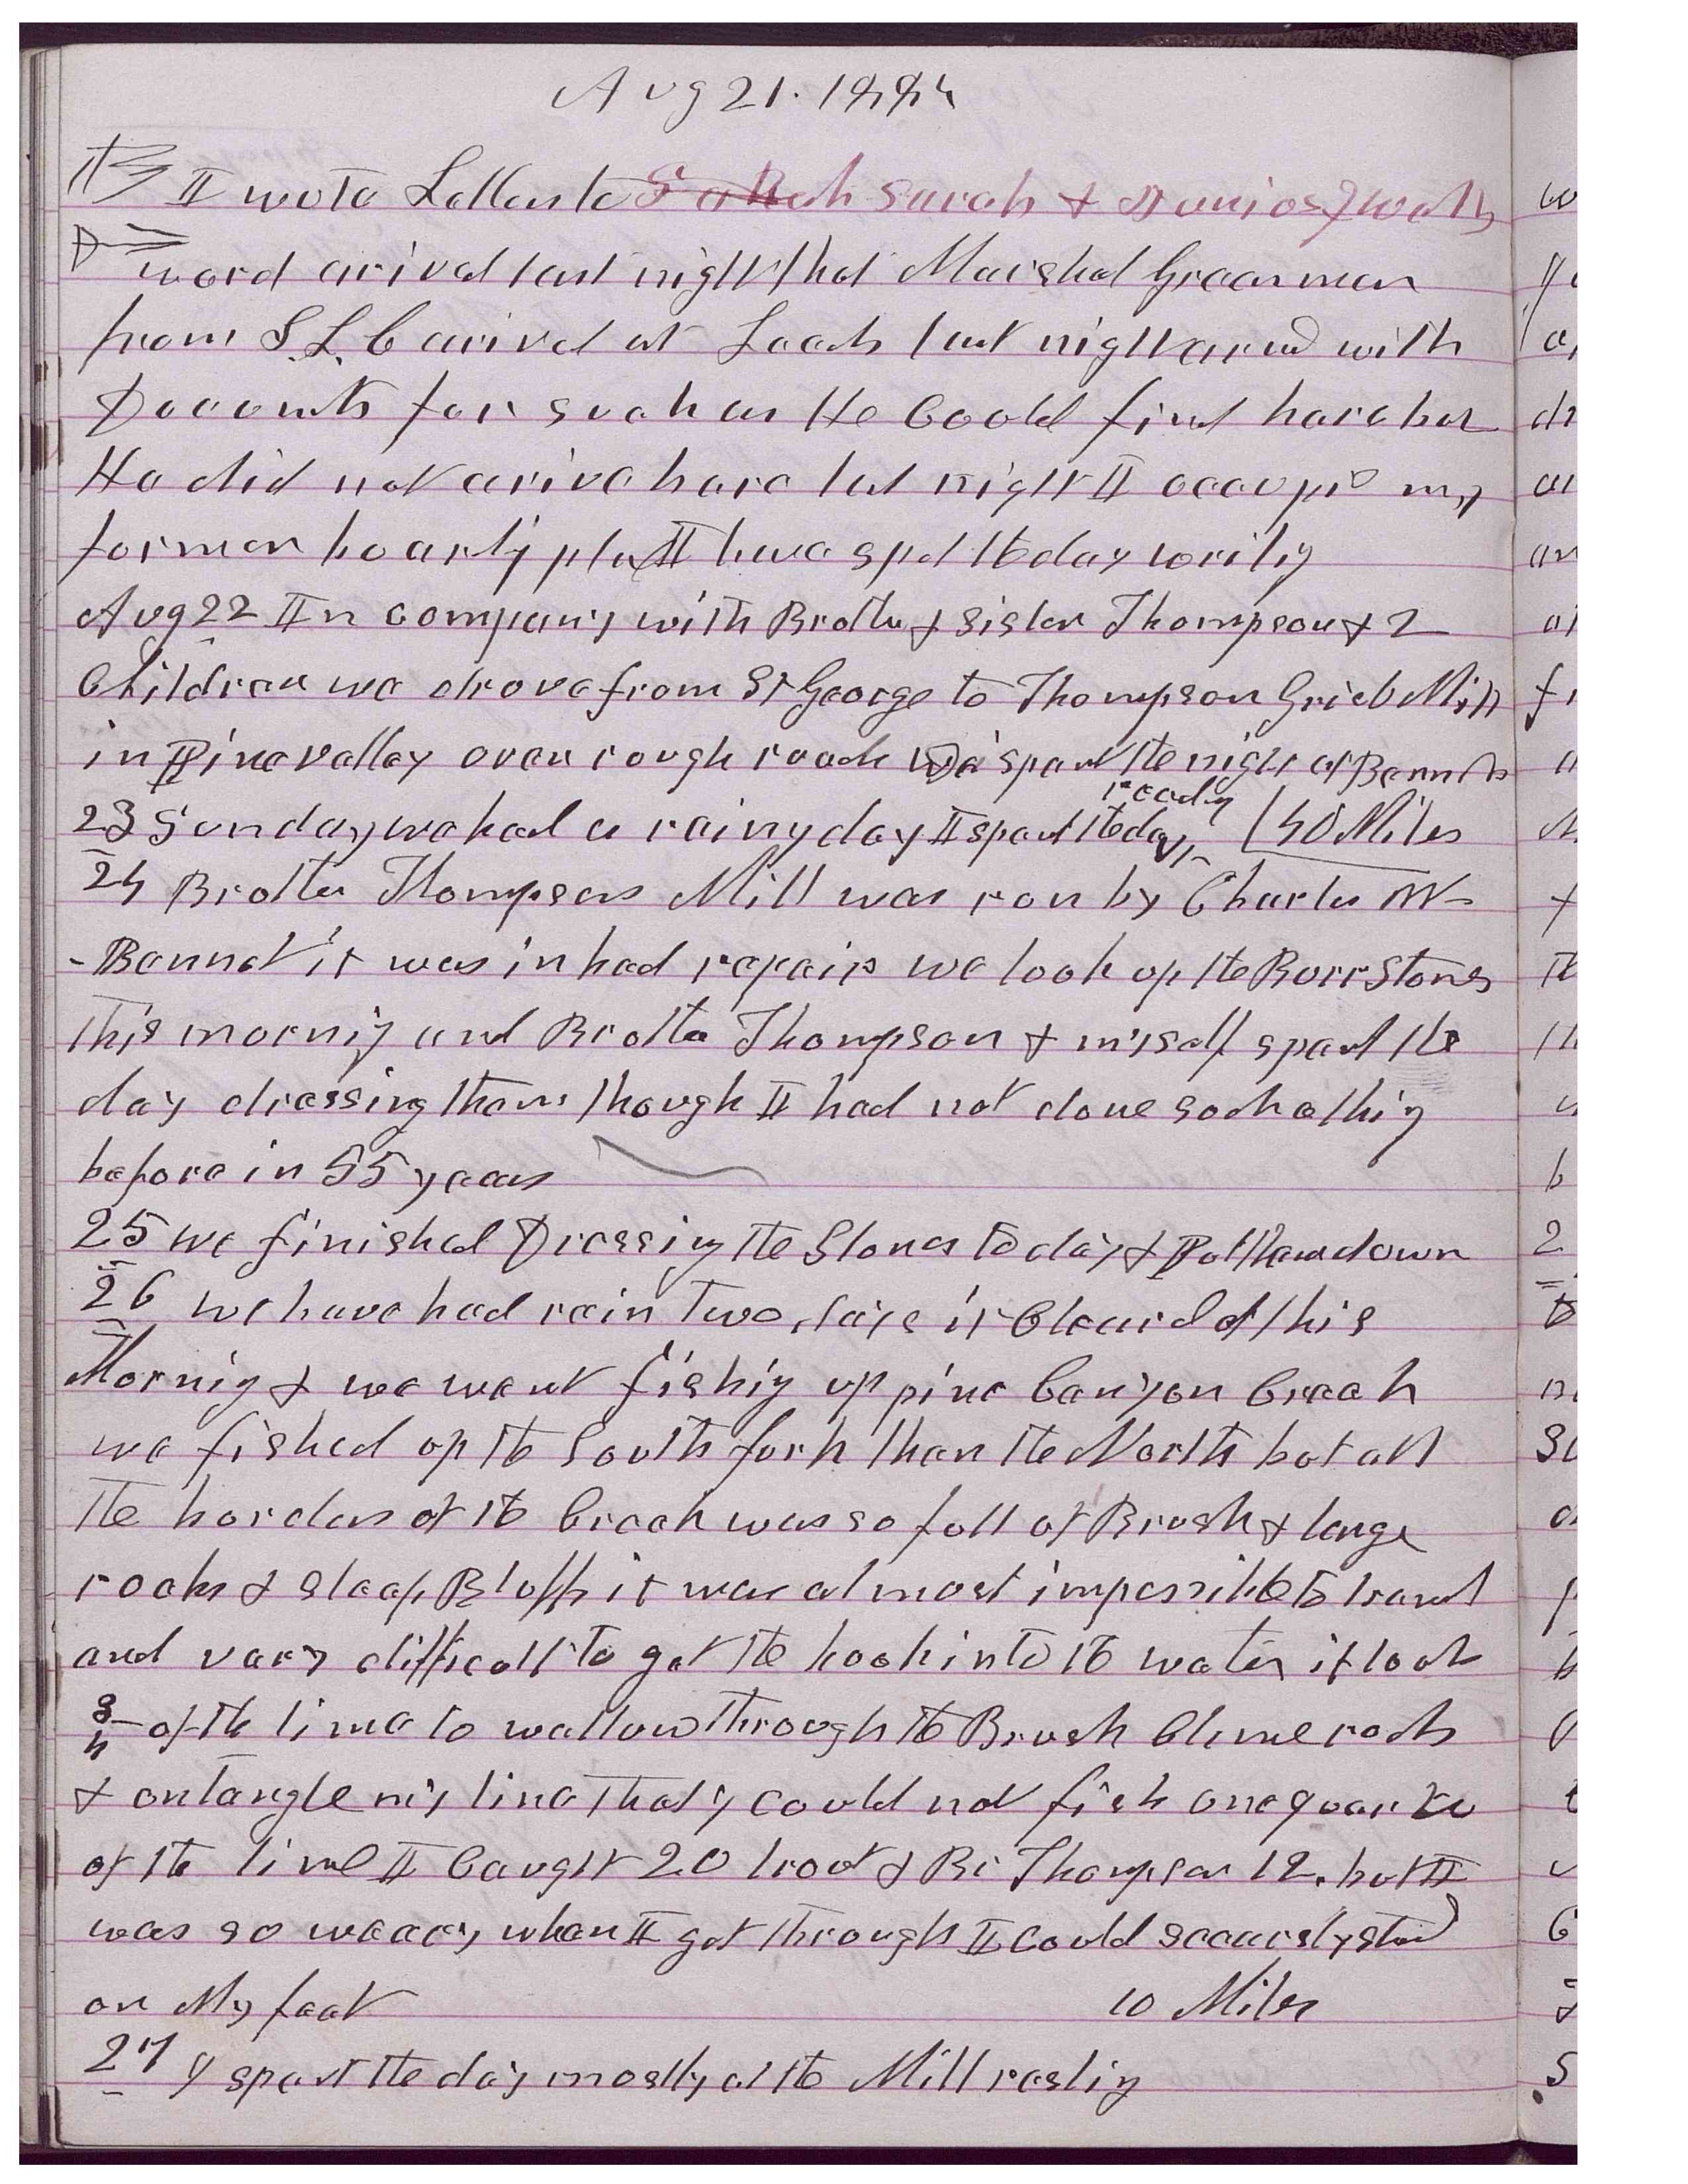 Aug 21. 1885
I wrote Letters to Sarah Sarah &
word arived last night that Marshal Greenman
from S.L.C arived at Leeds last night armed with
Docunts for such as He Could find here but
He did not arive here last night I occupie my
former hearty I have spet the day
Aug 22 In company with Brother & Sister Thompson & 2
Children we drove from St George to Thompson Grist Mill
in Pine valley over rough roads We spent the night at Bennets
23 Sunday we had a rainy day I spent the day reading 40 Miles
24 Brother Thompsons Mill was run by Charles W-
-Bennet it was in bad repair we took up the Burr Stones
This mornig and Brother Thompson & myself spent the
day dressing them though I had not done such a thig
before in 55 years
25 we finished Dressing the Stones to day & Put them down
26 we have had rain two days it Cleared of this
Mornig & we went fishig up pine Canyon Creek
we fished up the South fork then the North but all
the borders of the Creek was so full of Brush & large
rocks & steep Bluffs it was almost impossible to travel
and very difficult to get the hook into the water it took
3/4 of the time to wallow through the Brush Clime rocks
& entangle my line that I could not fish one quarter
of the time I Caught 20 trout & Br Thompson 12. but I
was so weary when I got through I could scearsly stand
on My feet 10 Miles
27 I spent the day mostly at the Mill restig